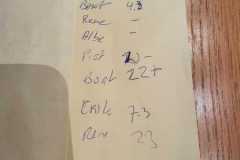 Bout 4.3
Rene -
Albe -
Pist 20 -
Boat 22+
Exile 7.3
Rene 23